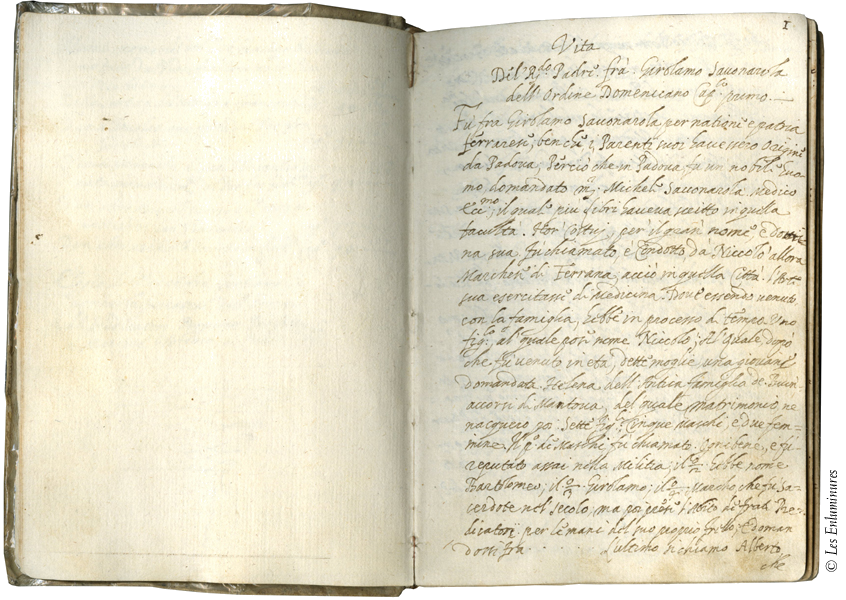 1
Vita
Del R.do Padre fra Girolamo Savonarola
dell'Ordine Domenicano Cap.o primo.
Fù fra Girolamo Savonarola, per natione e patria
Ferrarese, benche i Parenti suoi havessero Origine
da Padova, Perciò che in Padova fu un nobil huo
mo domandato m.r Michele Savonarola Medico
ecc.mo, il quale piu libri haveva scritto in quella
facultà. Hor costui, per il gran nome e dottri
na sua fù chiamato, e condotto da Niccolò allora
Marchese di Ferrara, acciò in quella Città l'Arte
sua esercitasse di Medicina. Dove essendo venuto
con la famiglia, hebbe in processo di tempo Uno
figlo. al quale pose nome Niccolo; Al quale dopò
che fù venuto in età, dette moglie una giovane
domandata Helena dell'Antica famiglia de Buon
accorsi di Mantova, del quale matrimonio ne
nacquero poi Sette figli. Cinque Maschi, e due fem=
mine. Il p.o de Maschi fù chiamato, e fù
reputato assai nella Militia; il 2.o hebbe nome
Bartolomeo; il 3.o Girolamo; il 4.o Maurizio che fù Sa=
cerdote nel secolo, ma poi prese l'Abito de frati Pre=
dicatori per le mani del suo proprio frello, e doman
dossi fra L'ultimo si chiamò Alberto
che
© Les Enluminures